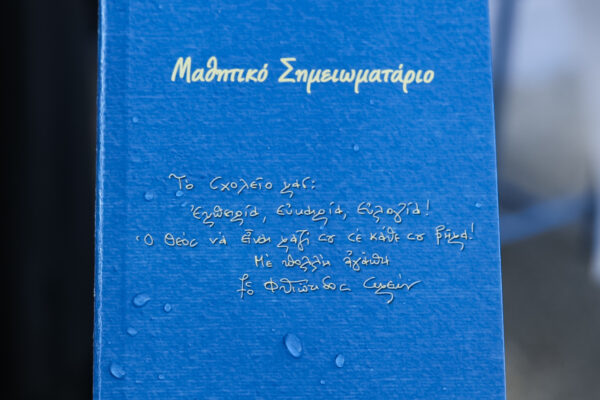 Μαθητικό Σημειωματάριο
Τὸ Σχολεῖο μας:
Ἐμπειρία, εὐκαιρία, εὐλογία!
Ὁ Θεὸς νὰ εἶναι μαζί σου σὲ κάθε σου βῆμα!
Μὲ πολλὴ ἀγάπη
Φθιώτιδος Συμεών